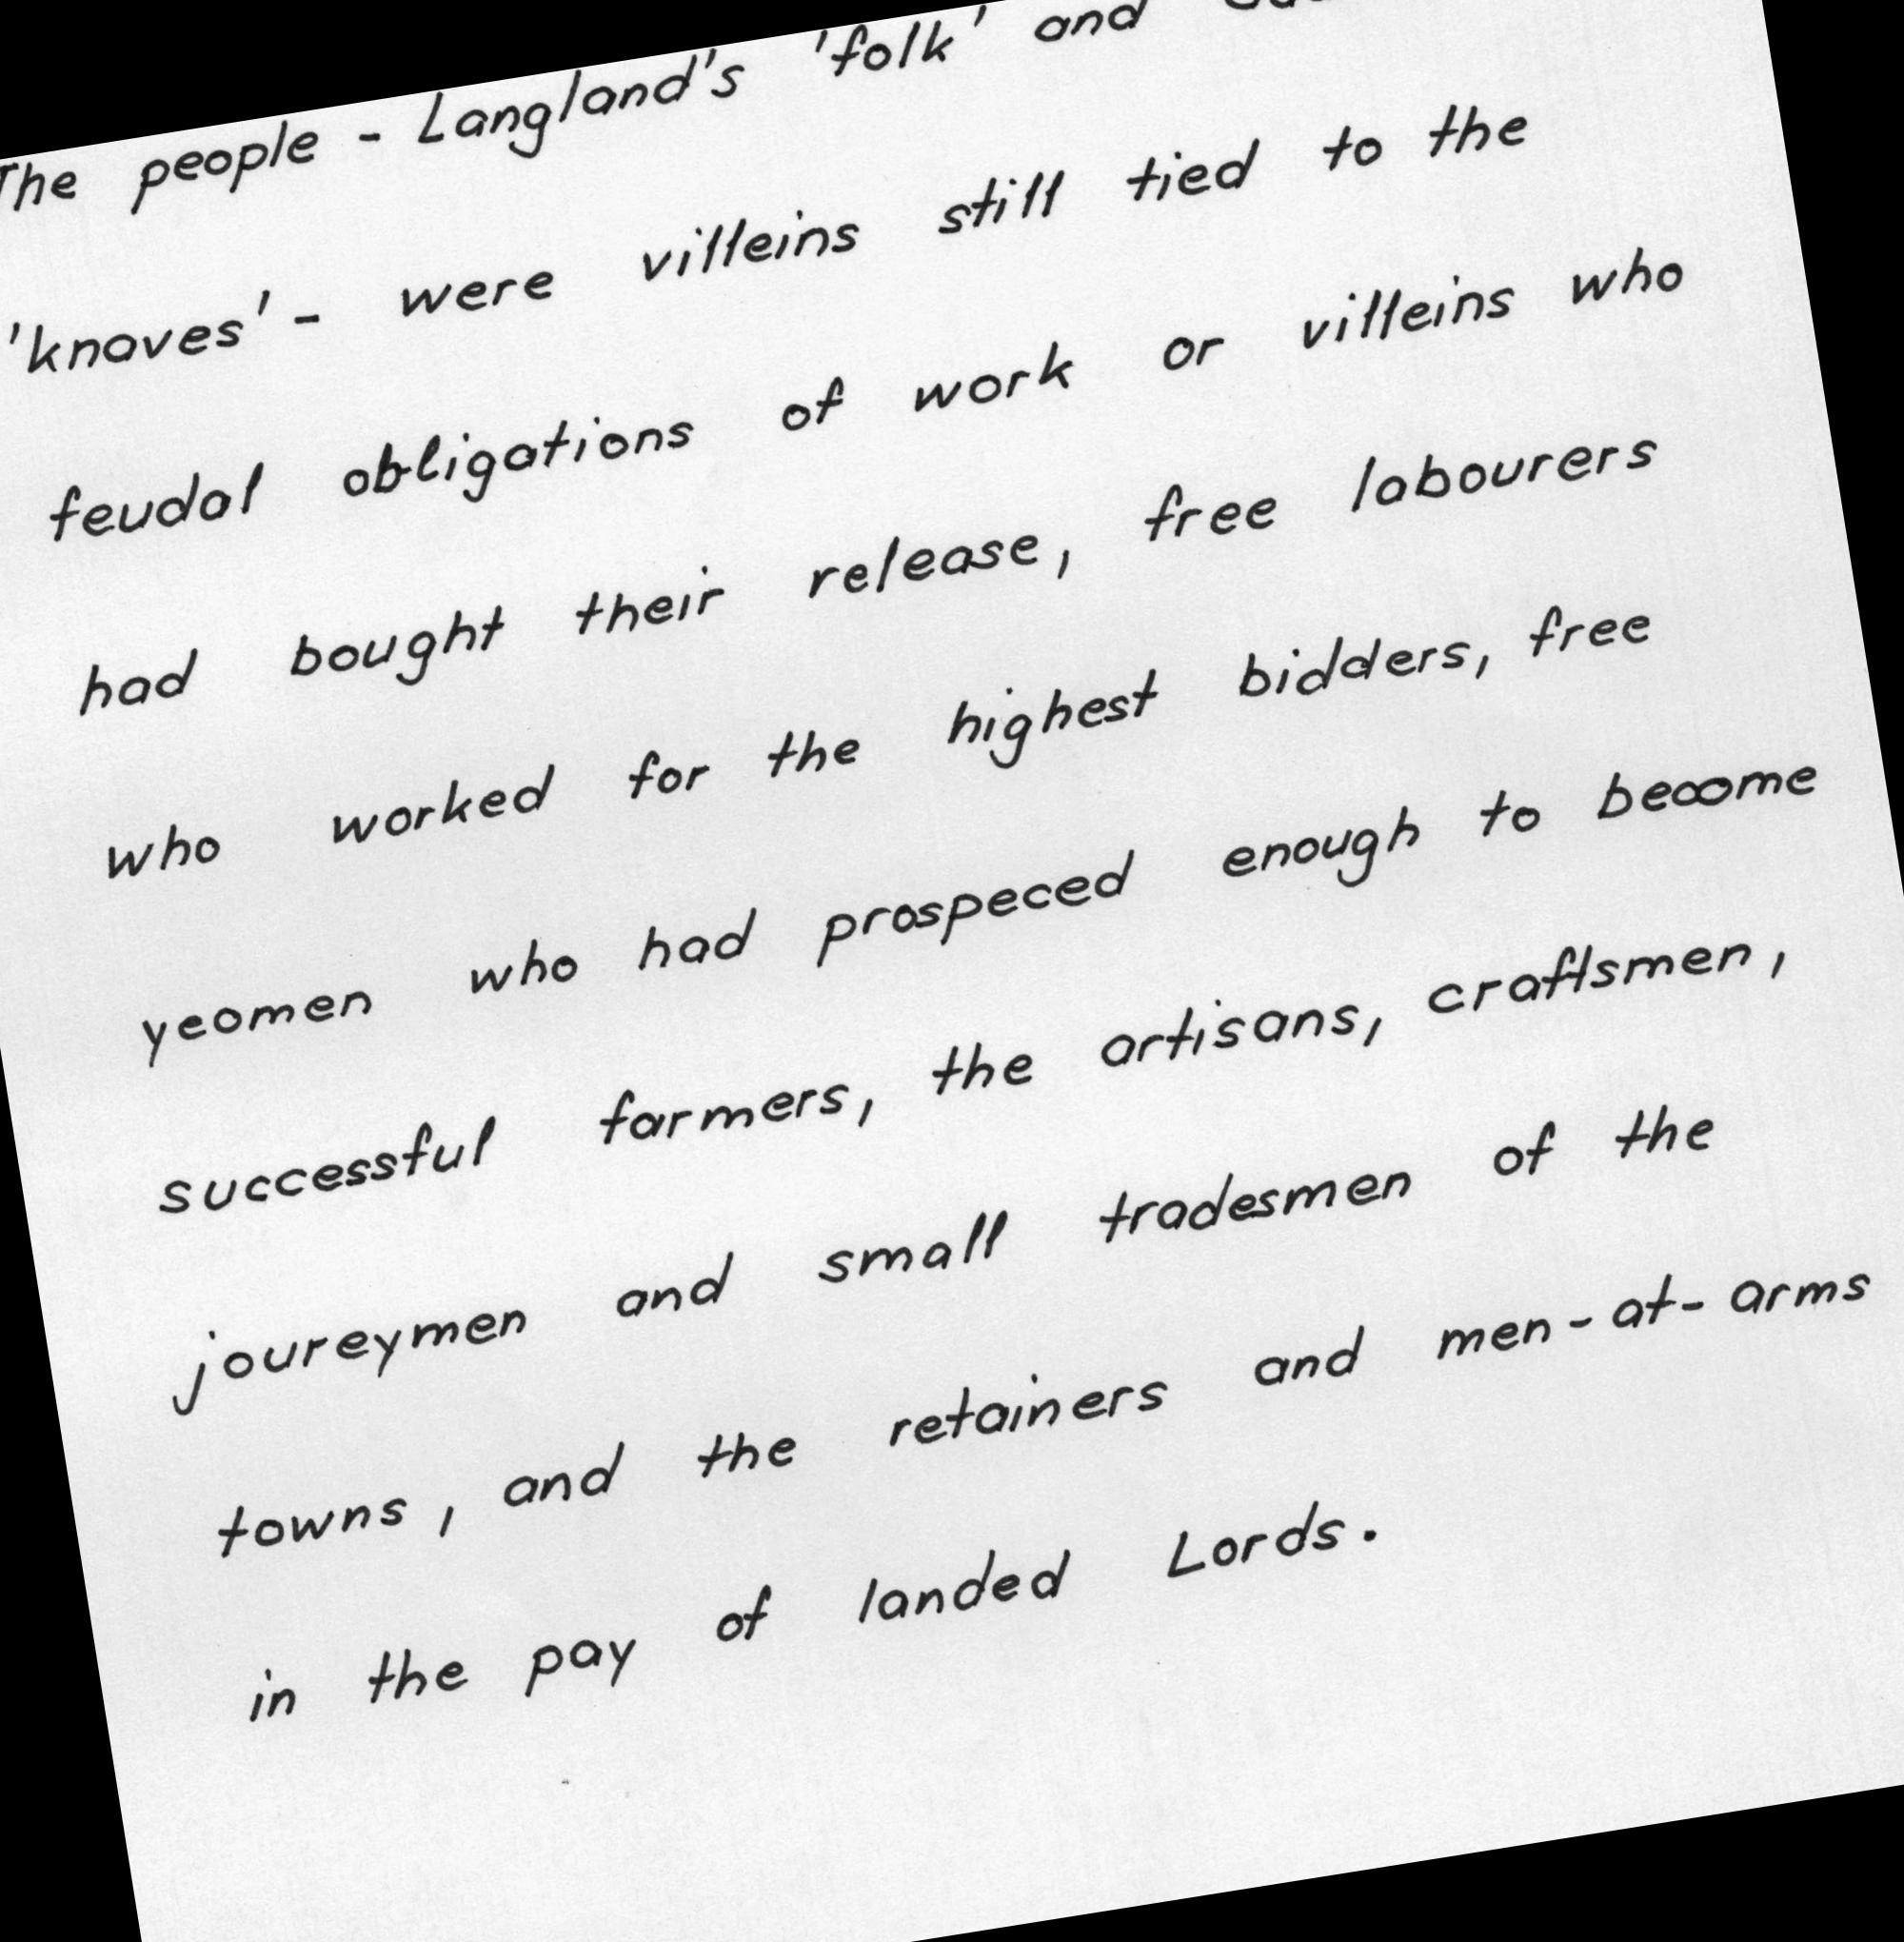 The people - Langland's 'folk' and
'knaves' - were villeins still tied to the
feudal obligations of work or villeins who
had bought their release, free labourers
who worked for the highest bidders, free
yeomen who had prospeced enough to become
successful farmers, the artisans, craftsmen,
joureymen and small tradesmen of the
towns, and the retainers and men-at-arms
in the pay of landed Lords.